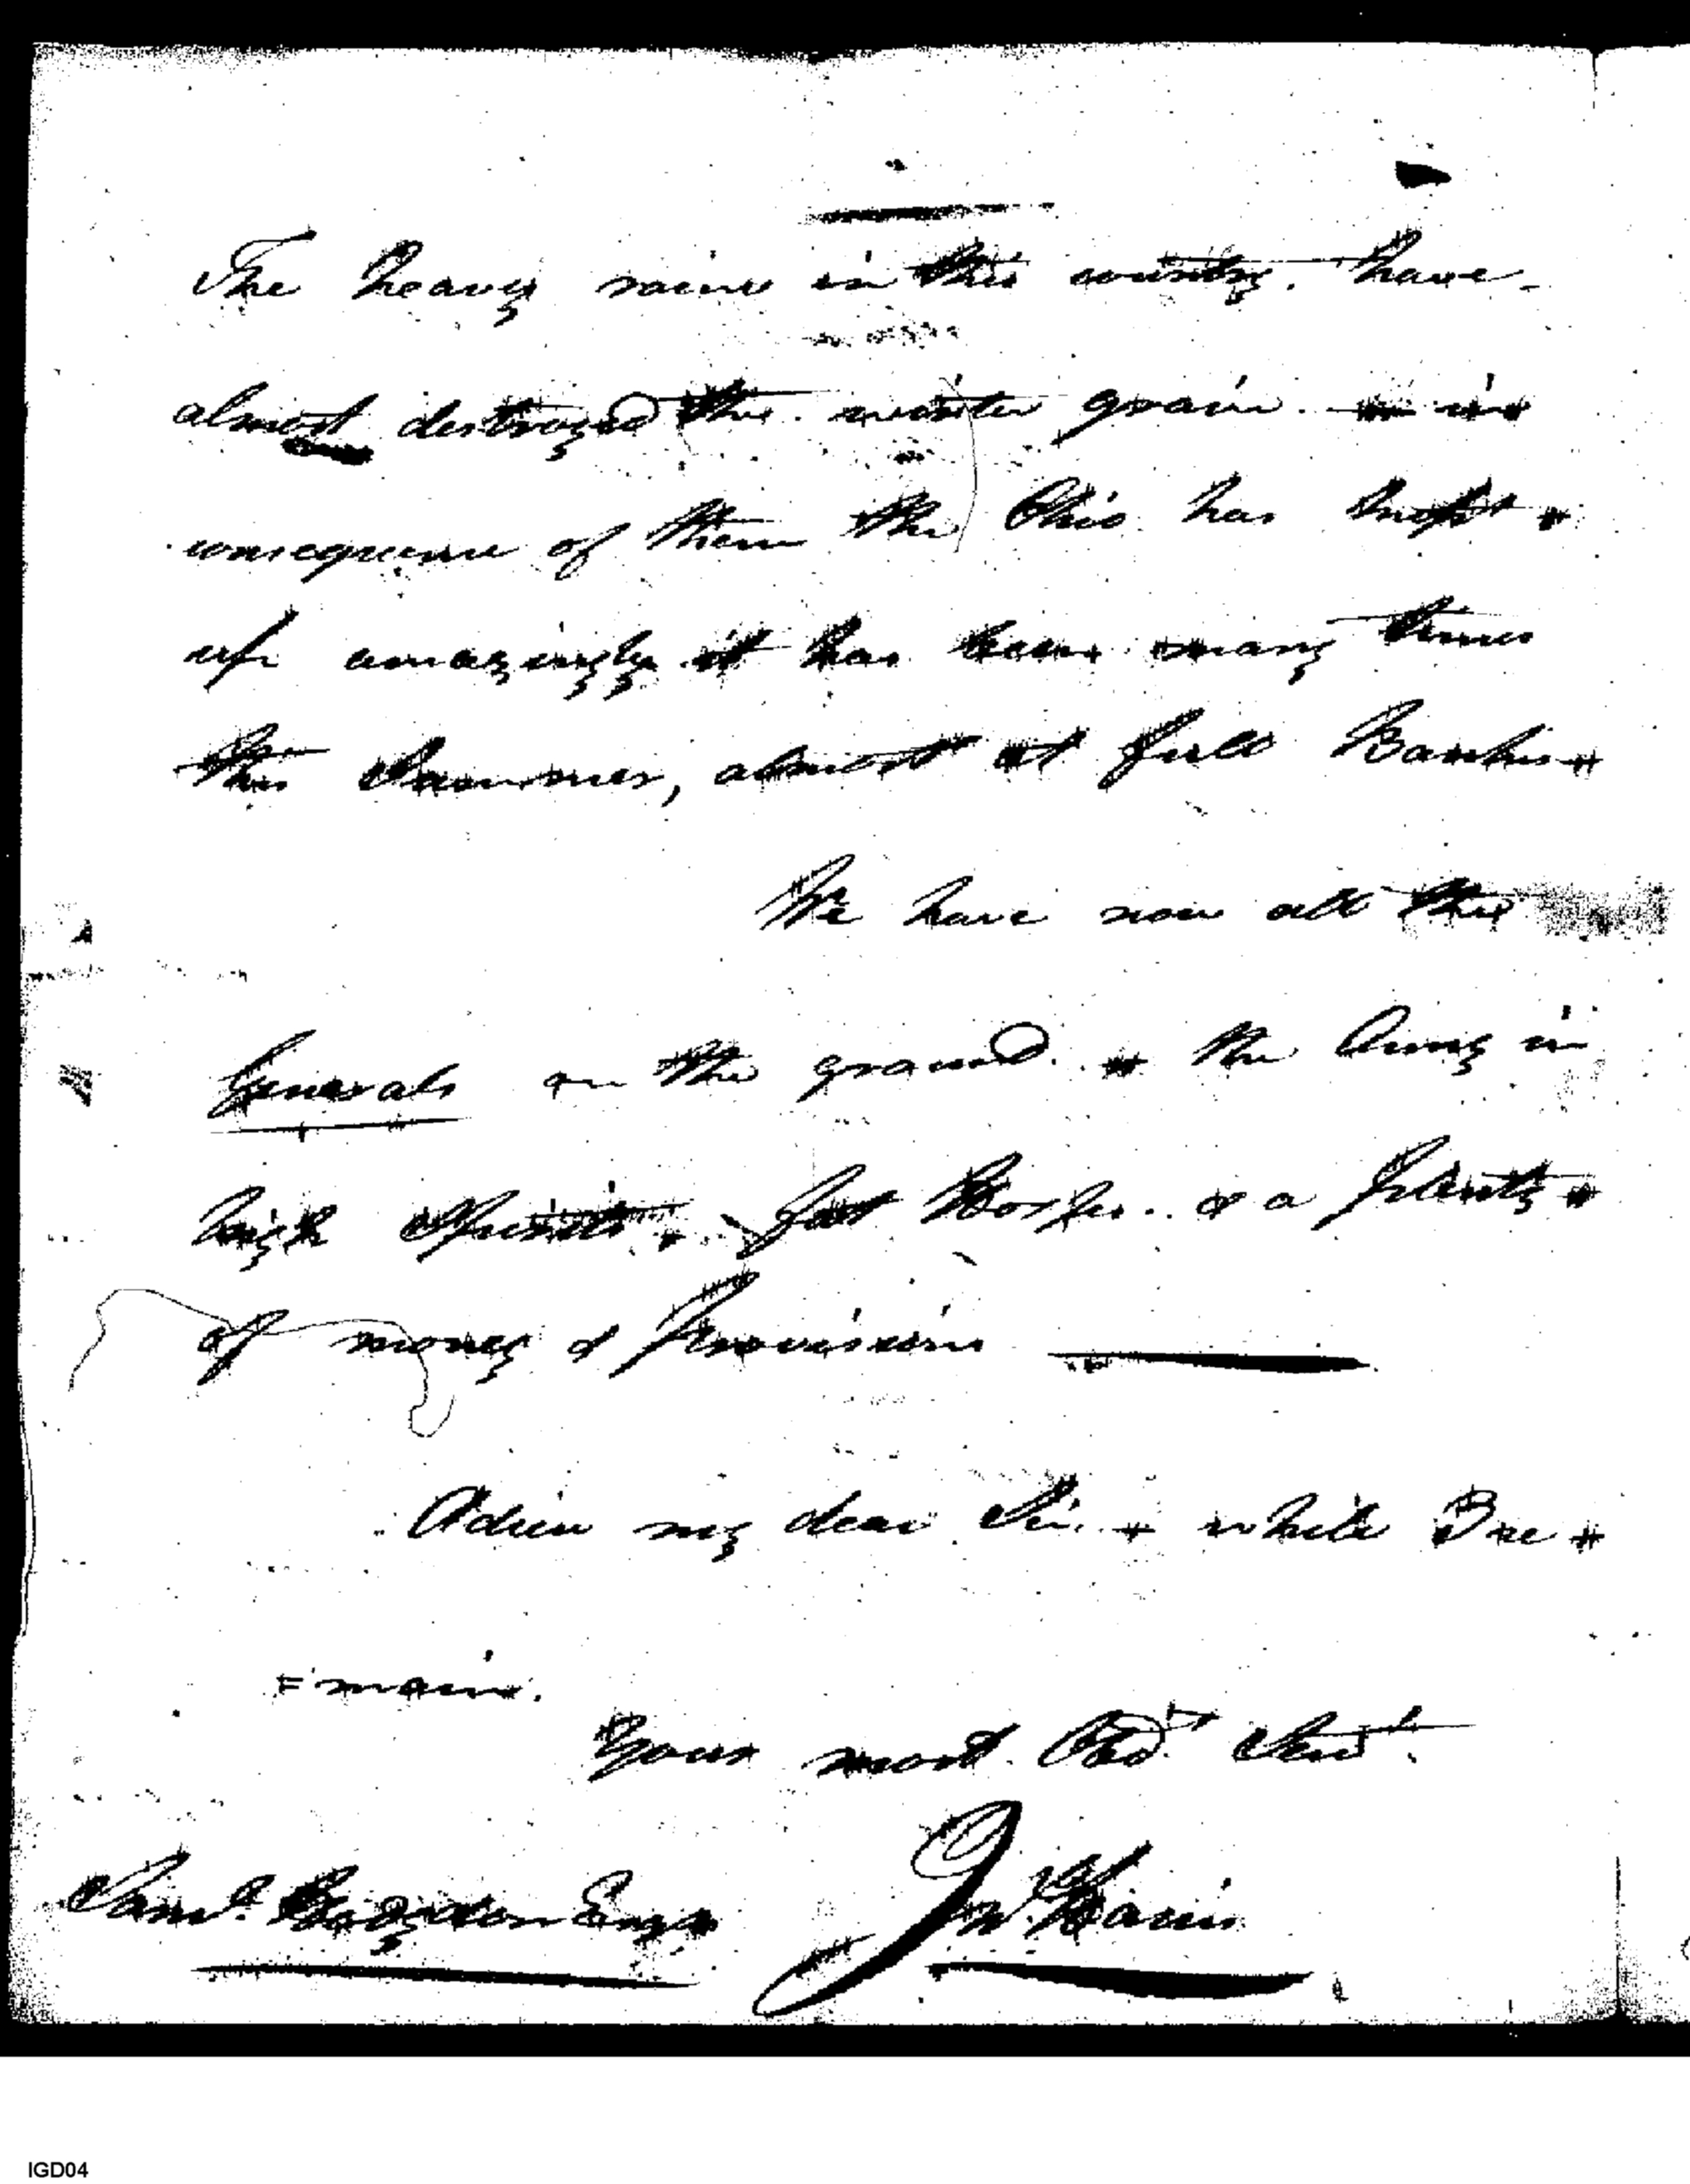 The heavy rains in this country. have
almost destroyed the winter grain. in
consequence of them the Ohio has kept
up amazingly it has been many times
this Summer, almost at full Banks
We have now all the
Generals on the ground. the Army in
high Spirits. fat Horses. & a plenty
of money & provisions
Adieu my dear Sir. while I re
=main.
Your most Obdt Servt.
Saml. Hodgdon Esqr
Jn Harris
IGD04